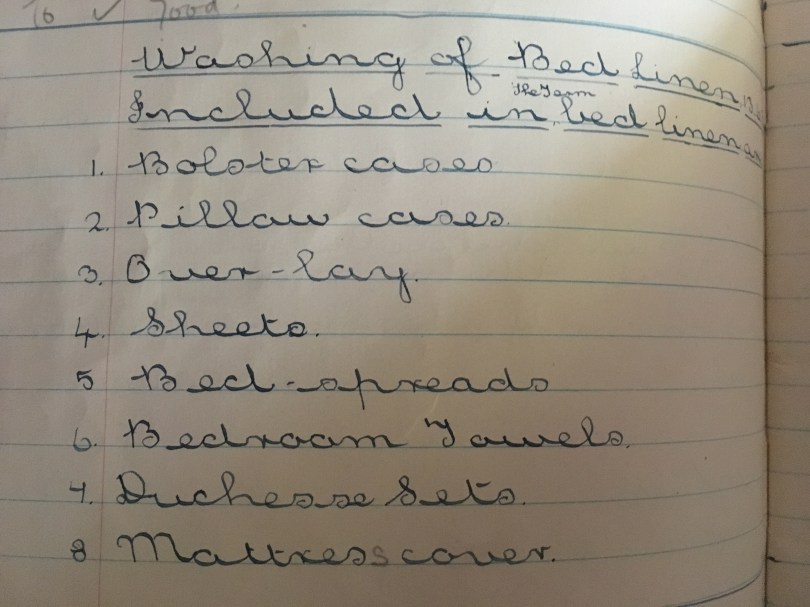 16 ✓ Good.
Washing of Bed linen
The Term
Included in bed linen
1. Bolster cases
2. Pillow cases.
3. Over-lay.
4. Sheets.
5 Bed-spreads
6. Bedroom Towels.
7. Duchesse Sets.
8 Mattress cover.